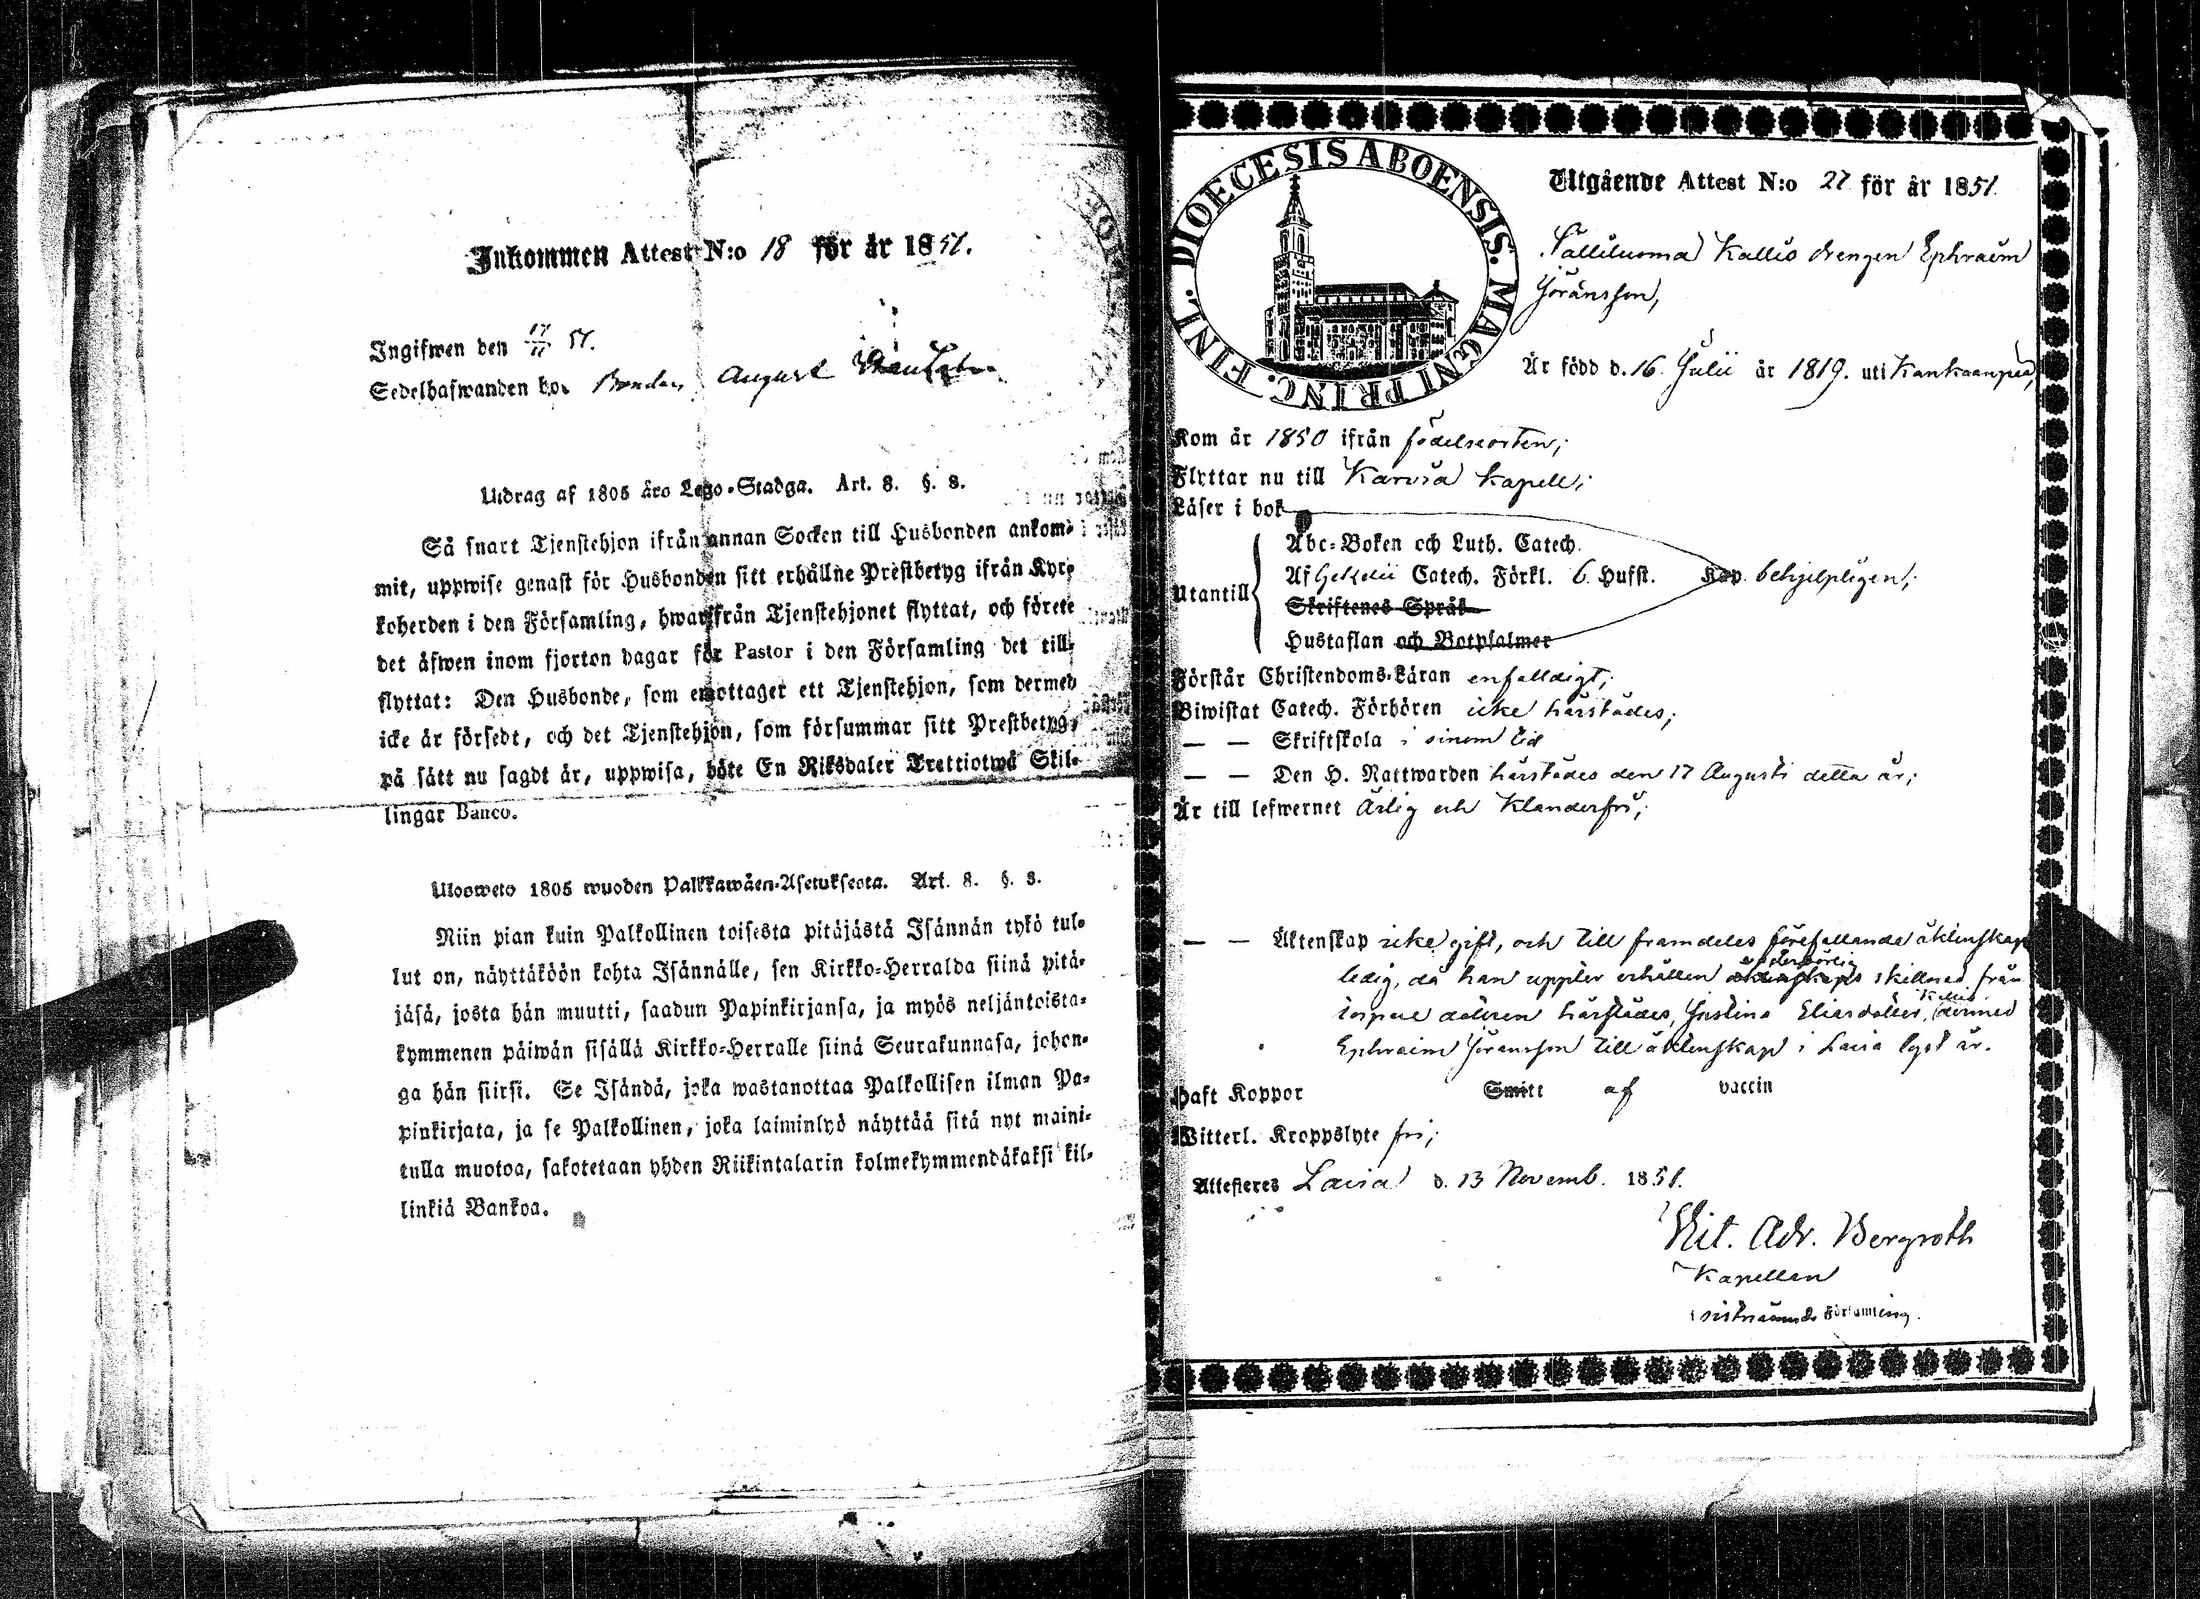 Inkommen Attest N:o 18 för år 1851.
Ingifwen den 17/11 51.
Sedelhafwanden hos Bonden August
Utdrag af 1805 års Lego-Stadga. Art. 8. §. 8.
Så snart Tjenstehjon ifrån annan Socken till Husbonden ankom-
mit, uppwise genast för Husbonden sitt erhållne Prestbetyg ifrån Kyr-
koherden i den Församling, hwarifrån Tjenstehjonet flyttat, och förete
det äfwen inom fjorton dagar för Pastor i den Församling det till-
flyttat: Den Husbonde, som emottager ett Tjenstehjon, som dermed
icke är försedt, och det Tjenstehjon, som försummar sitt Prestbetyg,
på sätt nu sagdt är, uppwisa, böte En Riksdaler Trettiotwå Skil-
lingar Banco.
Ulosweto 1805 wuoden Palkkawäen-Asetuksesta. Art. 8. §. 8.
Niin pian kuin Palkollinen toisesta pitäjästä Isännän tykö tul-
lut on, näyttäköön kohta Isännälle, sen Kirkko-Herralda siinä pitä-
jäsä, josta hän muutti, saadun Papinkirjansa, ja myös neljäntoista-
kymmenen päiwän sisällä Kirkko-Herralle siinä Seurakunnasa, johon-
ga hän siirsi. Se Isändä, joka wastanottaa Palkollisen ilman Pa-
pinkirjata, ja se Palkollinen, joka laiminlyö näyttää sitä nyt maini-
tulla muotoa, sakotetaan yhden Riikintalarin kolmekymmendäkaksi kil-
linkiä Bankoa.
DIOECESIS ABOENSIS. MAGNI PRINC. FINL.
Utgående Attest N:o 27 för år 1851.
Kallio drengen Ephraim
Göransson,
Är född d. 16 Julii år 1819. uti Kankaanpää,
Kom år 1850 ifrån födelseorten;
Flyttar nu till Karvia Kapell;
Läser i bok
Abc-Boken och Luth. Catech.
Af Gezelii Catech. Förkl. 6. Hufst. Kap. behjelpligen;
Utantill
Skriftenes Språk
Hustaflan och Botpsalmer
Förstår Christendoms-Läran enfalldigt;
Biwistat Catech. Förhören icke härstädes;
— — Skriftskola i sinom tid
— — Den H. Nattwarden härstädes den 17 Augusti detta år;
Är till lefwernet Ärlig och Klanderfri;
— — Äktenskap icke gift, och till framdeles förefallande äktenskap
ledig, då han upplöst erhållen skillnad från
dottren härstädes, Justina Eliasdotter,
Ephraim Göransson till äktenskap i Lavia lyst är.
Haft Koppor Smitt af vaccin
Witterl. Kroppslyte fri;
Attesteres Lavia d. 13 Novemb. 1851.
Vit. Adr. Bergroth
Kapellan
i sistnämnde Församling.